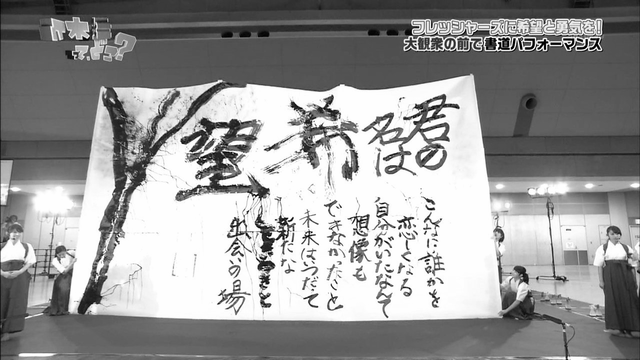 乃木坂って、どこ?
フレッシャーズに希望と勇気を!
大観衆の前で書道パフォーマンス
君の
名は
希望
こんなに誰かを
恋しくなる
自分がいたなんて
想像も
できなかったこと
未来はいつだって
新たな
ときめきと
出会いの場